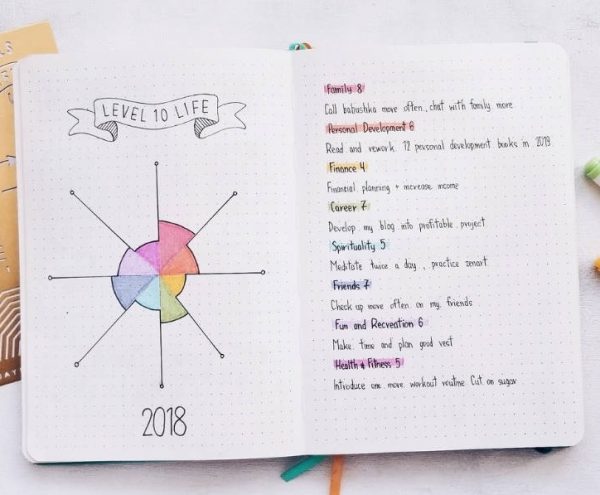 LEVEL 10 LIFE
2018
Family 8
Call babushka more often, chat with family more
Personal Development 6
Read and rework 12 personal development books in 2019
Finance 4
Financial planning + increase income
Career 7
Develop my blog into profitable project
Spirituality 5
Meditate twice a day, practice
Friends 7
Check up more often on my friends
Fun and Recreation 6
Make time and plan good rest
Health & Fitness 5
Introduce one more workout routine Cut on sugar